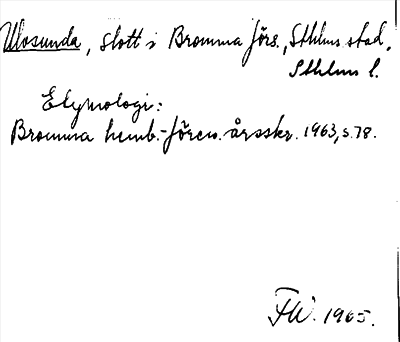 Ulvsunda, slott i Bromma förs., Sthlms stad,
Sthlms l.
Etymologi:
Bromma hemb.-fören. årsskr. 1963, s. 78.
FW. 1965.